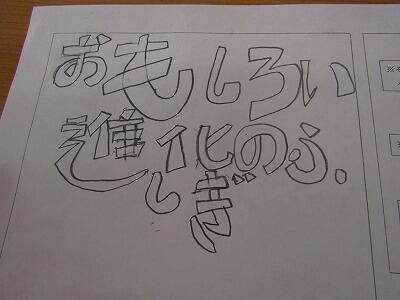 おもしろい
進化のふ.
しぎ
※